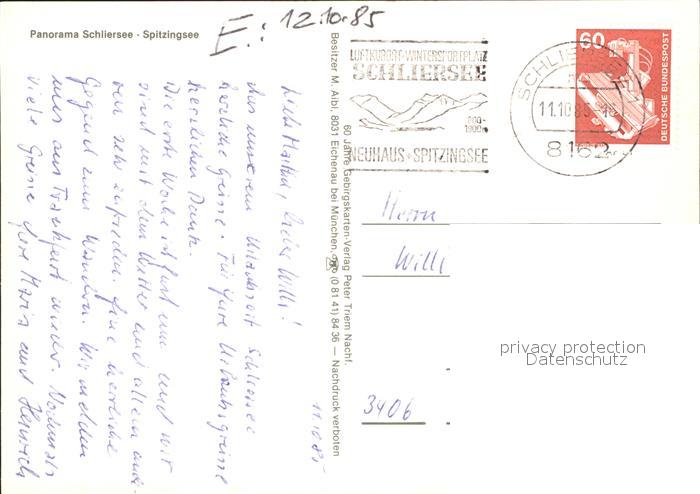 Panorama Schliersee · Spitzingsee
E.: 12.10.85
LUFTKURORT & WINTERSPORTPLATZ
SCHLIERSEE
800-
1900m
NEUHAUS · SPITZINGSEE
SCHLIERSEE
11.10.85-16
8162
60
DEUTSCHE BUNDESPOST
11.10.85
Liebe Martha, lieber Willi!
Aus unserem Urlaubsort Schliersee
herzliche Grüsse. Für Eure Urlaubsgrüsse
herzlichen Dank.
Die erste Woche ist fast um und wir
sind mit dem Wetter und allem ande-
ren sehr zufrieden. Eine herrliche
Gegend zum Wandern. Wir melden
uns aus Frankfurt wieder. Nochmals
viele Grüsse Eure Maria und Heinrich
Besitzer M. Albl, 8031 Eichenau bei München, (0 81 41) 84 36 — Nachdruck verboten
60 Jahre Gebirgskarten-Verlag Peter Triem Nachf.
Herrn
Willi
3406
privacy protection
Datenschutz